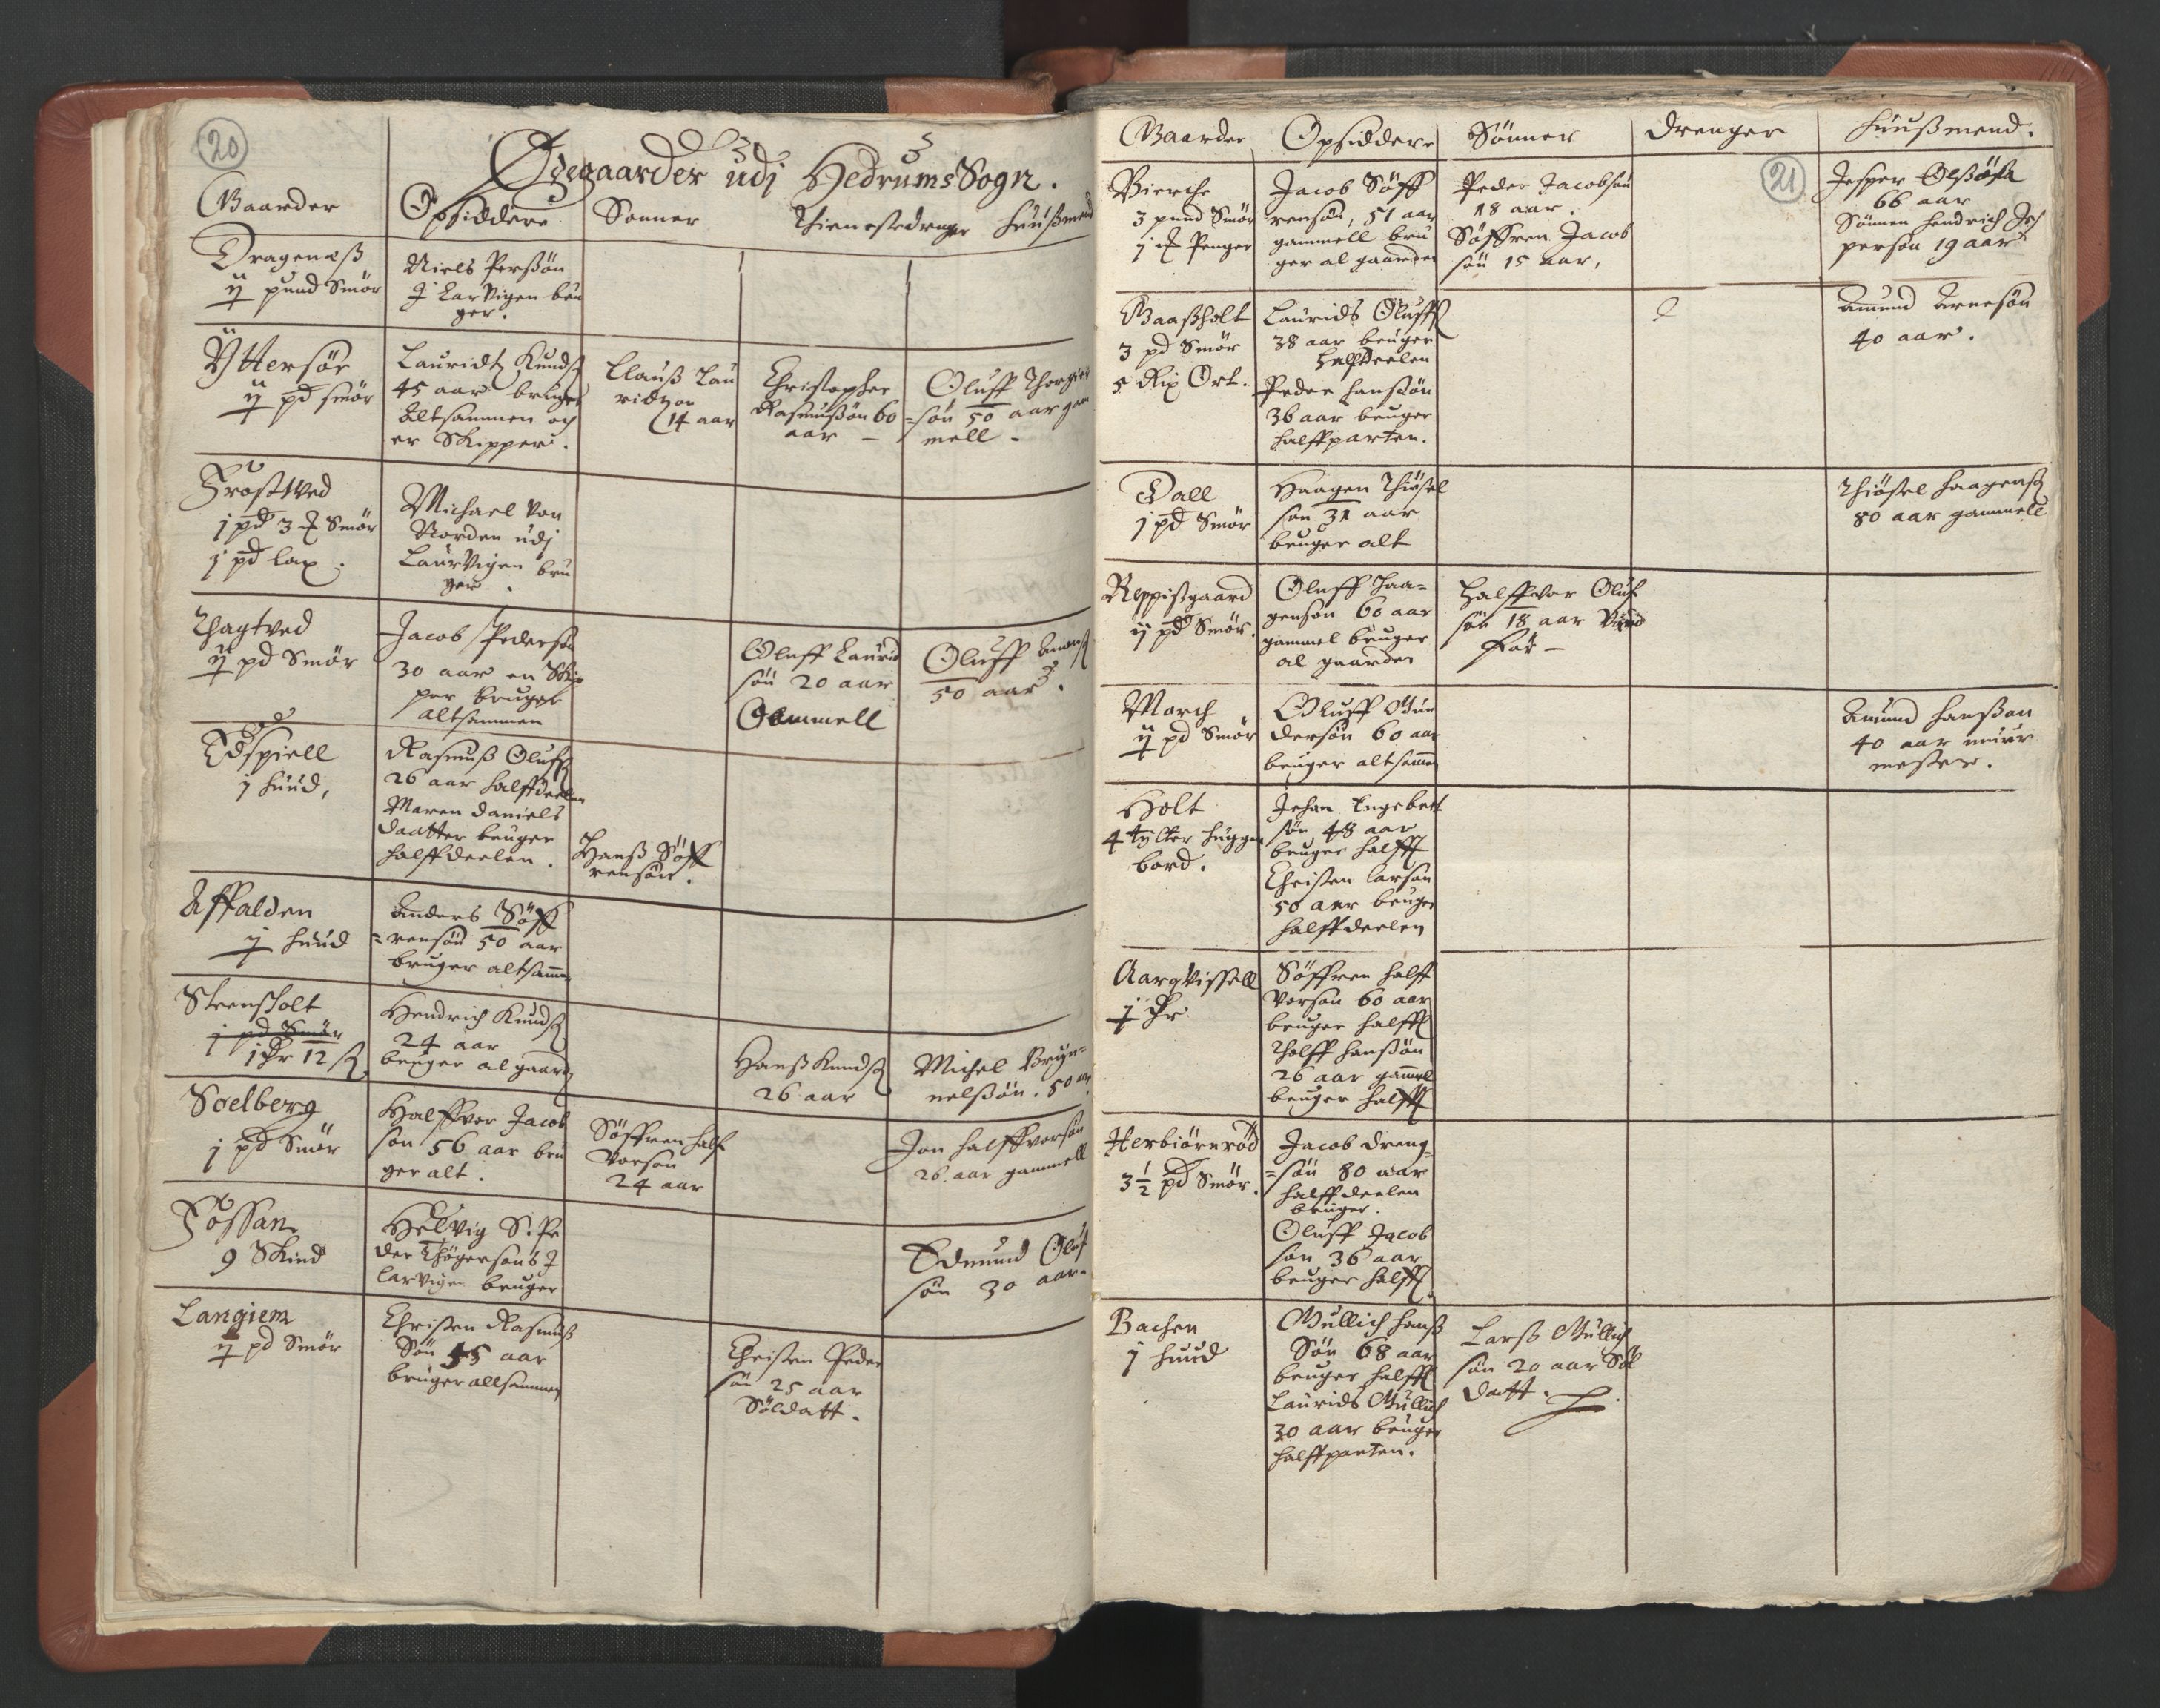 20
Ødegaarder udj Hedrums Sogn.
Gaarder
Opsiddere
Sønner
Thienestedrenger
Huußmend
Dragenæß
ij pund Smör
Niels Perßön
J Larvigen bru
ger.
Yttersöe
ij pd smör
Lauridtz Knudß
45 aar bruger
Altsammen och
er Skipper.
Clauß Lau
ridtzøn
14 aar
Christopher
Rasmußön 60
aar
Oluff Thorgier
=sön 50 aar gam
mell
Frostved
j pd 3 Smör
j pd lax.
Michael Von
Norden udj
Laurvigen bru
ger.
Thagtved
ij pd Smör
Jacob Pedersön
30 aar en Skip
per bruger
altsammen
Oluff Laurid
sön 20 aar
Gammell
Oluff
50 aar.
Edspiell
j huud,
Rasmuß Olufß
26 aar halffdeelen
Maren daniels
daatter bruger
halffdeelen.
Hanß Söff
rensön.
Affalden
ij huud
Anders Söff
=rensön 50 aar
bruger altsammen
Steensholt
j pd Smör
1 12 ß
Hendrich Knudß
24 aar
bruger al gaard
Hanß Knudß
26 aar
Michel Bryn=
nelßön. 50 aar
Soelberg
j pd Smör
Halffvor Jacob
son 56 aar bru
ger alt.
Söffren half
vorson
24 aar
Jon halffvorsön
26 aar gammell
Fossan
9 Skind
Helvig S. Pe
der Thögersöns J
larvigen bruger
Edmund Oluf
sön 30 aar.
Langiem
ij pd Smör
Christen Rasmuß
Sön 45 aar
bruger allsammen
Christen Peder
sön 25 aar
Söldatt.
21
Gaarder
Opsiddere
Sönner
drenger
Huußmend.
Bierche
3 pund Smör
j Penger
Jacob Söff
rensön, 51 aar
gammell bru
ger al gaarden
Peder Jacobsön
18 aar.
Söffren Jacob
sön 15 aar,
Jesper
66 aar
Sönnen Hendrich Jeß
persön 19 aar
Baaßholt
3 pd Smör
5 Rix Ort.
Laurids Oluffß
38 aar bruger
halffdeelen
Peder Hansön
36 aar bruger
halffparten.
Amund Arnesön
40 aar.
Dall
j pd Smör
Haagen Thiöstel
son 31 aar
bruger alt
Thiöstel Haagenß
80 aar gammell
Reppißgaard
ij pd Smör.
Oluff Haa=
genson 60 aar
gammel bruger
al gaarden
Halffvor Oluf
sön 18 aar
för
March
ij pd Smör
Oluff Gun
dersön 60 aar
bruger altsamen
Amund Hanßön
40 aar muur
mester.
Holt
4 tylter huggen
bord.
Johan Engebrett
sön 48 aar
bruger halfft
Christen larson
50 aar bruger
halffdeelen
Aarqvissell
j
Söffren Halff
vorson 60 aar
bruger halfft
Tholff Hanßön
26 aar gamell
bruger halfft
Herbiörnröd
3½ pd Smör.
Jacob dreng=
=sön 80 aar
halffdeelen
bruger.
Oluff Jacob
son 36 aar
bruger halfft
Bachen
j huud
Gullich Hanß
Sön 68 aar
bruger halfft
Laurids Gullich
30 aar bruger
halffparten.
Larß Gullich
sön 20 aar Söl
datt.